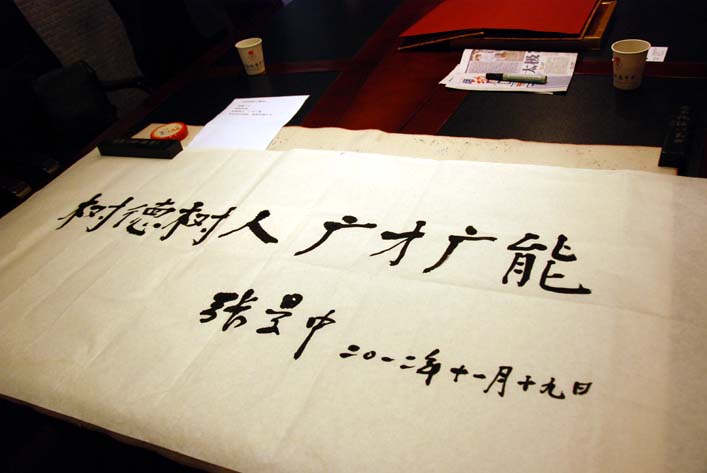 树德树人 广才广能
张景中
二〇一二年十一月十九日
太极